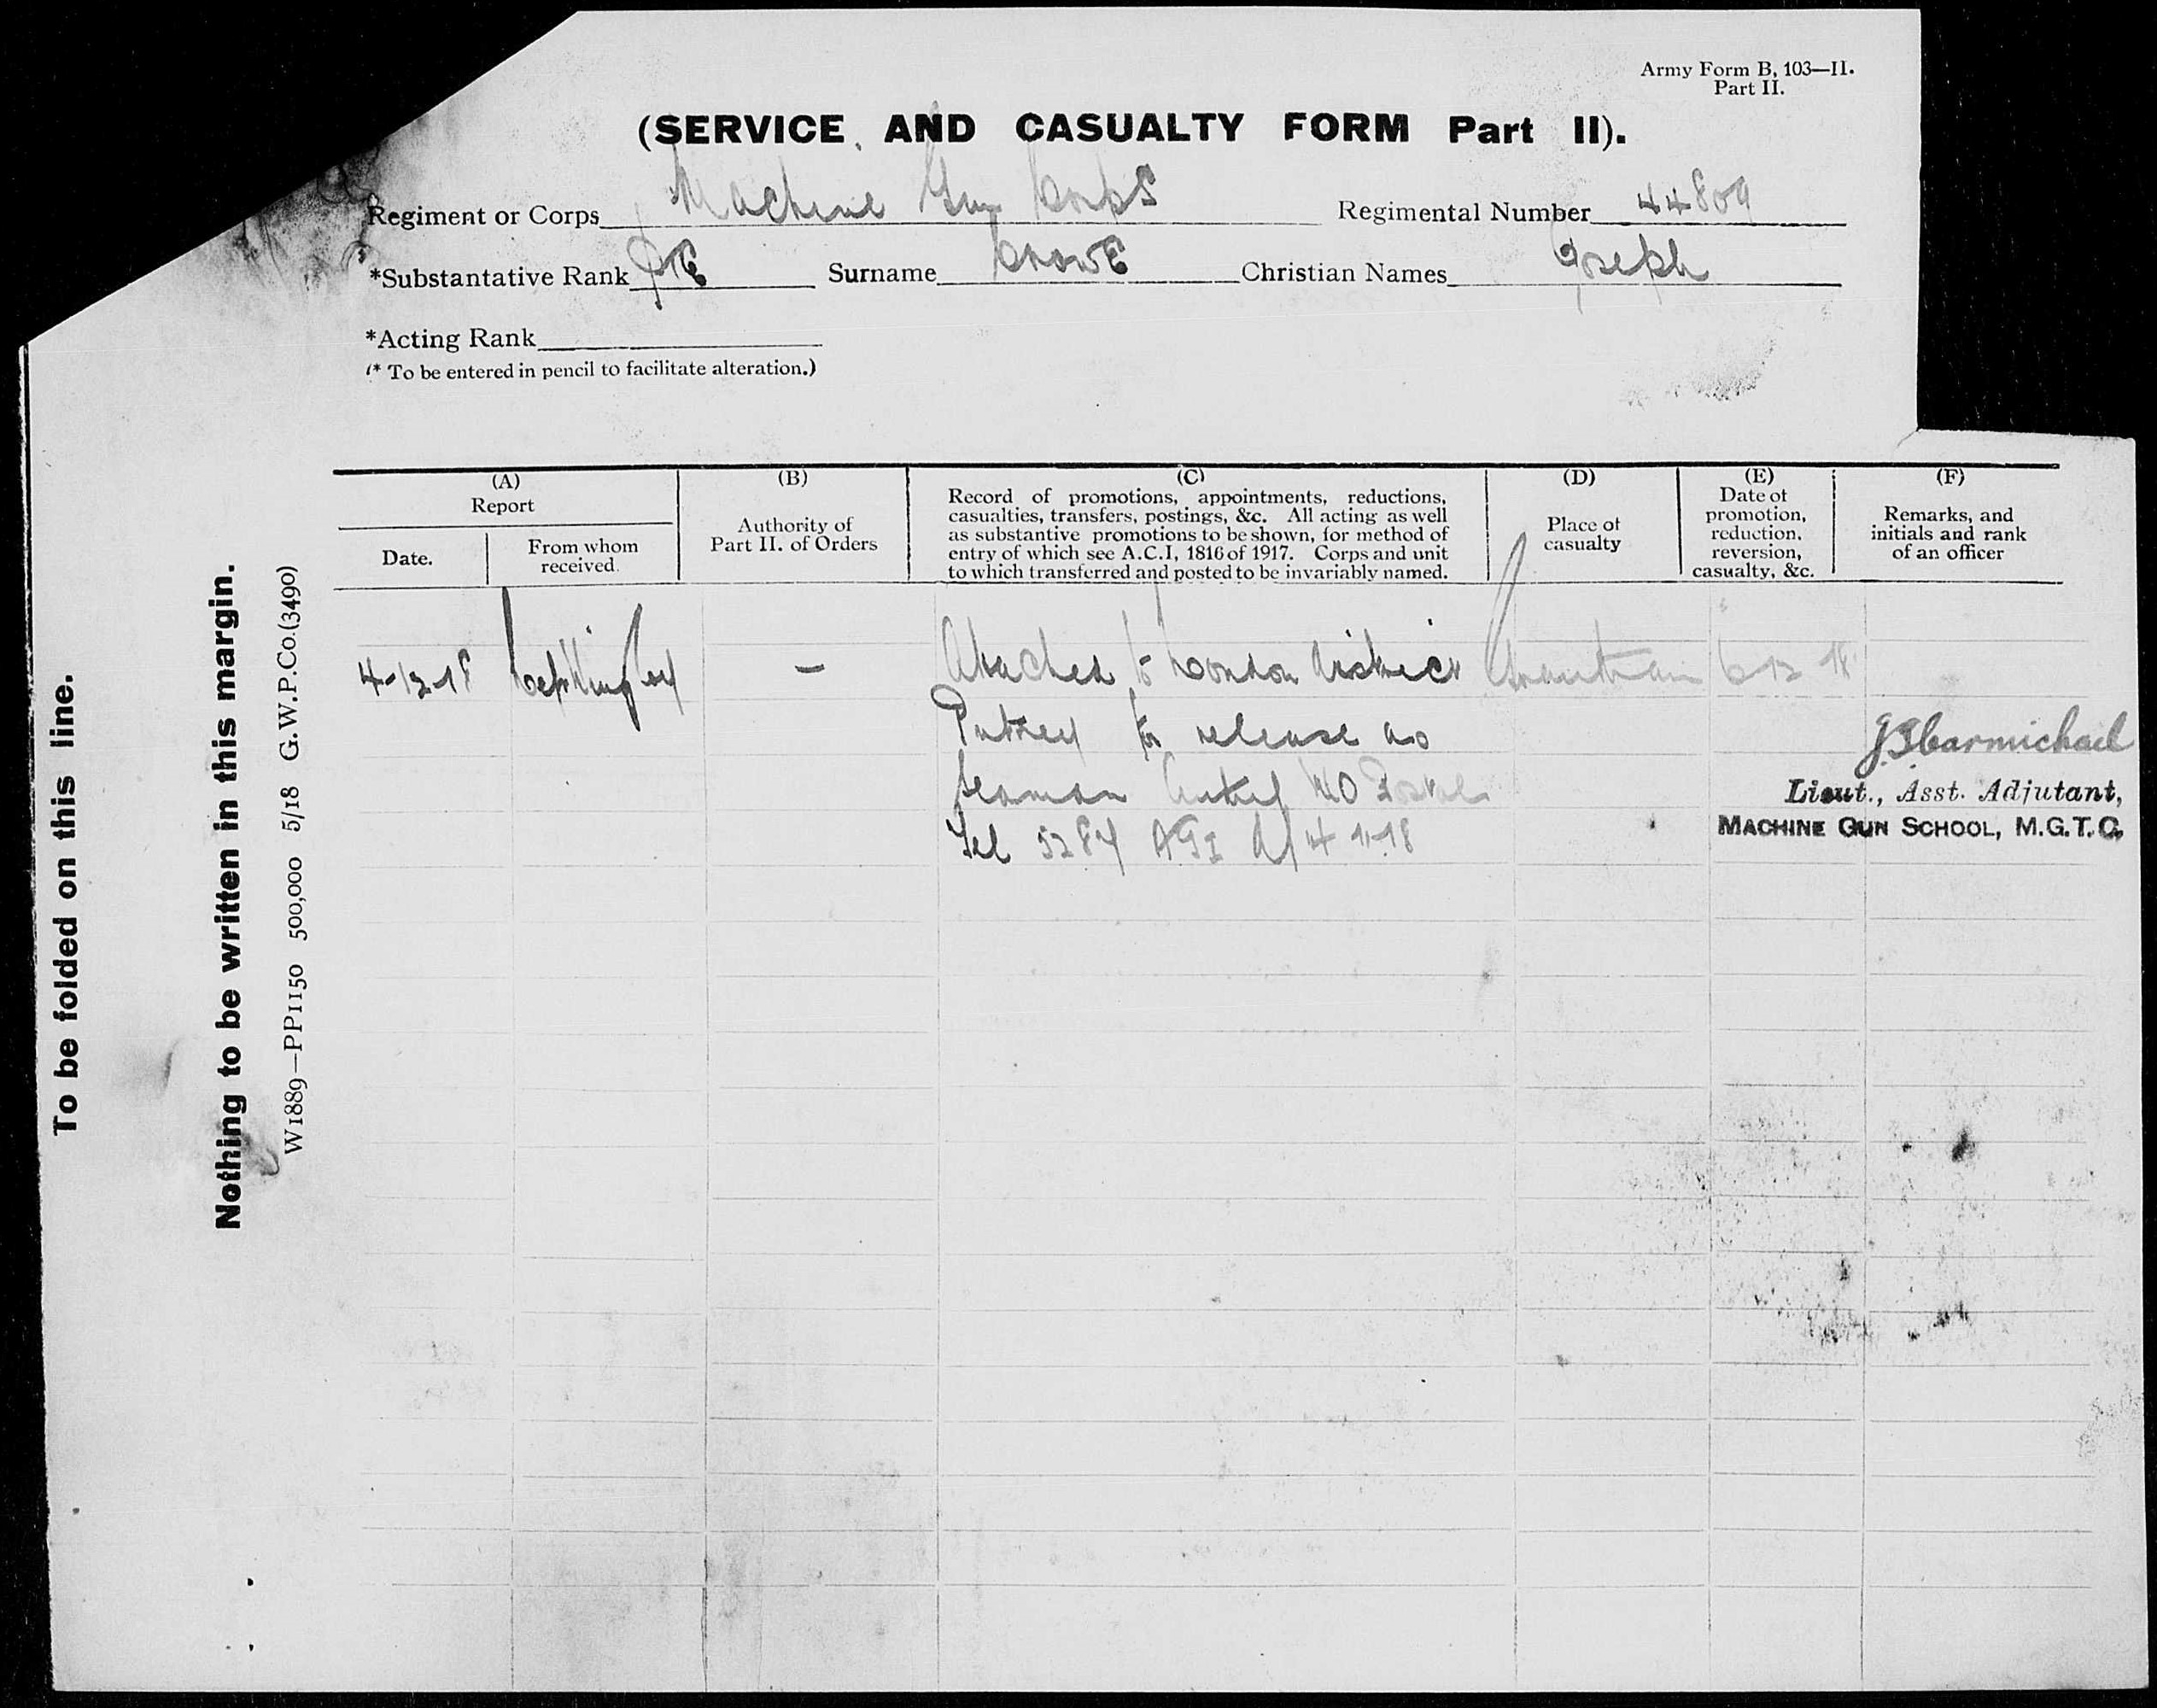 Army Form B, 103—II.
Part II.
(SERVICE AND CASUALTY FORM Part II).
Regiment or Corps Machine Gun Corps Regimental Number 44809
*Substantative Rank Pte Surname Crowe Christian Names Joseph
*Acting Rank
(* To be entered in pencil to facilitate alteration.)
(A)
Report
Date.
From whom
received.
(B)
Authority of
Part II. of Orders
(C)
Record of promotions, appointments, reductions,
casualties, transfers, postings, &c. All acting as well
as substantive promotions to be shown, for method of
entry of which see A.C.I, 1816 of 1917. Corps and unit
to which transferred and posted to be invariably named.
(D)
Place of
casualty
(E)
Date of
promotion,
reduction,
reversion,
casualty, &c.
(F)
Remarks, and
initials and rank
of an officer
4-12-18 — Attached to London District Grantham 6 12 18
for release as
Seaman WO Postal
Tel 5287 AG1 4 11 18
JSCarmichael
Lieut., Asst. Adjutant,
MACHINE GUN SCHOOL, M.G.T.C.
To be folded on this line.
Nothing to be written in this margin.
W1889—PP1150 500,000 5/18 G.W.P.Co.(3490)